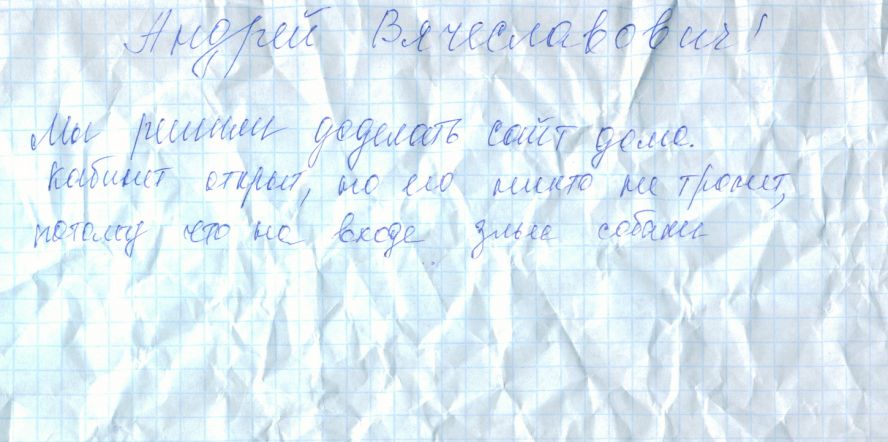 Андрей Вячеславович!
Мы решили доделать сайт дома.
Кабинет открыт, но его никто не тронет,
потому что на входе злые собаки